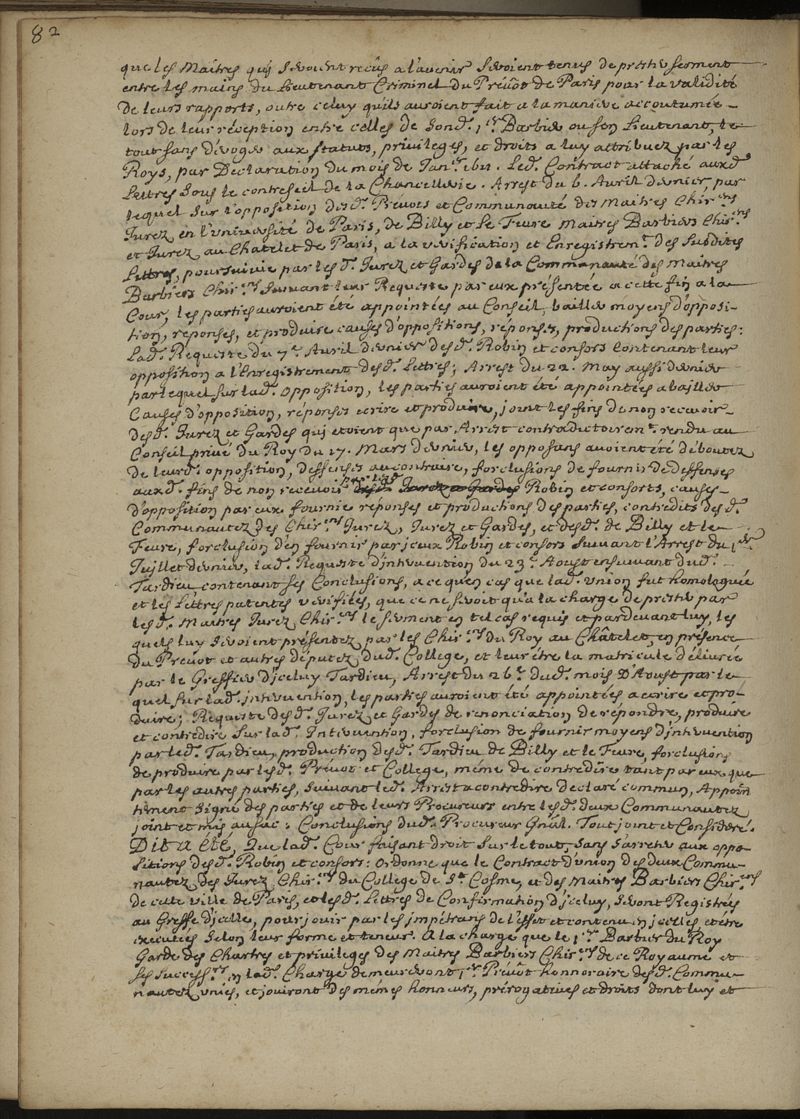 82
que les Maitres qui seront recus a l'avenir seroient tenus de prêter serment
entre les mains du Lieutenant Criminel du Prévôt de Paris pour la validité
de leurs rapports, outre celuy quils auroient fait a la maniere accoutumée
lors de leur réception entre celles de son d. 1er. Barbier ou son Lieutenant, le
tout sans déroger aux statuts, privileges, et droits a luy attribuez par les
Roys, par Déclaration du mois de Janr. Led. Contract attaché auxd.
Lettres sous le contrescel de la Chancellerie. Arrest du 6. Avril dernier, par
lequel sur l'opposition desd. Prevots et Communauté des Maitres Chirens
Jurez en l'université de Paris, de Billy et le Feure Maitres Barbiers Chirens
et Jurez au Chatelet de Paris, a la vérification et Enregistremt. des susdites
Lettres, poursuivie par les d. Jurez et Gardes de la Communauté des Maitres
Barbiers Chirens suivant leur Requeste par eux présentée a cette fin a la
Cour, les parties auroient été appointées au Conseil, bailler moyens d'opposi-
tion, réponses, et produire causes d'oppositions, réponses, productions des parties:
Lad. Requeste du 7e. Avril dernier desd. Robin et consors contenant leur
opposition a l'Enregistrement desd. Lettres; Arrest du 22. May aussi dernier
par lequel sur lad. opposition, les parties auroient été appointées a bailler
Causes d'opposition, réponses ecrire et produire, joint les fins de non recevoir
desd. Jurez et Gardes qui etoient que par Arrest contradictoiremt. rendu au
Conseil privé du Roy du 17. Mars dernier, les opposans avoient été déboutez
de leurd. opposition, deffenses au contraire, forclusions de fournir de deffenses
auxd. fins de non recevoir par lesd. Robin et consorts, causes
d'opposition par eux fournie réponses et productions des parties, contredits desd.
Communautez des Chirens Jurez, Jurez et Gardes, et desd. de Billy et le
Feure, forclusion d'en fournir par jceux Robin et consors suivant l'Arrest du 1er.
Juillet dernier, lad. Requeste d'jntervention du 23e. Aoust ensuivant dud.
Tardieu contenant ses Conclusions, a ce qu'en cas que lad. union fut homologuée
et les Lettres patentes vérifiées, que ce ne seroit qu'a la charge de prêter par
les d. Maitres Jurez Chirens le serment en tel cas requis et pardevant luy, les
quels luy seroient présentez par les Chirens du Roy au Châtelet, en présence
du Prevot et autres députez dud. College, et leur être la matricule délivrée
par le Greffier d'jceluy Tardieu, Arrest du 26e. dud. mois d'Aoust par le
quel sur lad. jntervention, les parties auroient été appointées a ecrire et pro-
duire; Requeste desd. Jurez et Gardes de renonciation de répondre, produire
et contredire sur lad. Intervention, forclusion de fournir moyens d'jntervention
par led. Tardieu, production desd. Tardieu de Billy et le Feure, forclusions
de produire par lesd. Prévot et College, même de contredire tant par eux que
par les autres parties, suivant led. Arrest a contredire declaré commun, Appoin
tement signé des parties et de leurs Procureurs entre lesd. deux Communautez
joint et mis au sac: Conclusions dud. Procureur Gnãl. Tout joint et Consideré.
Dit a été, Que lad. Cour faisant droit sur le tout, sans s'arreter aux oppo-
sitions desd. Robin et consors: Ordonne que le Contract d'union des deux Commu-
nautez des Jurez Chirens du College de St. Cosme, et des Maitres Barbiers Chirens
de cette ville de Paris, et lesd. Lettres de Confirmation d'jceluy, seront Registrées
au Greffe d'jcelle, pour jouir par les jmpetrans de l'effet et contenu en jcelles et être
executées selon leur forme et teneur. A la charge que le 1er. Barbier du Roy
Garde des Chartres et privileges des Maitres Barbiers Chirens de ce Royaume et
ses successrs. en lad. Charge demeureront 1er. Prévot honnoraire desd. Commu-
nautez unies, et jouiront des mêmes honneurs, prérogatives et droits dont luy et